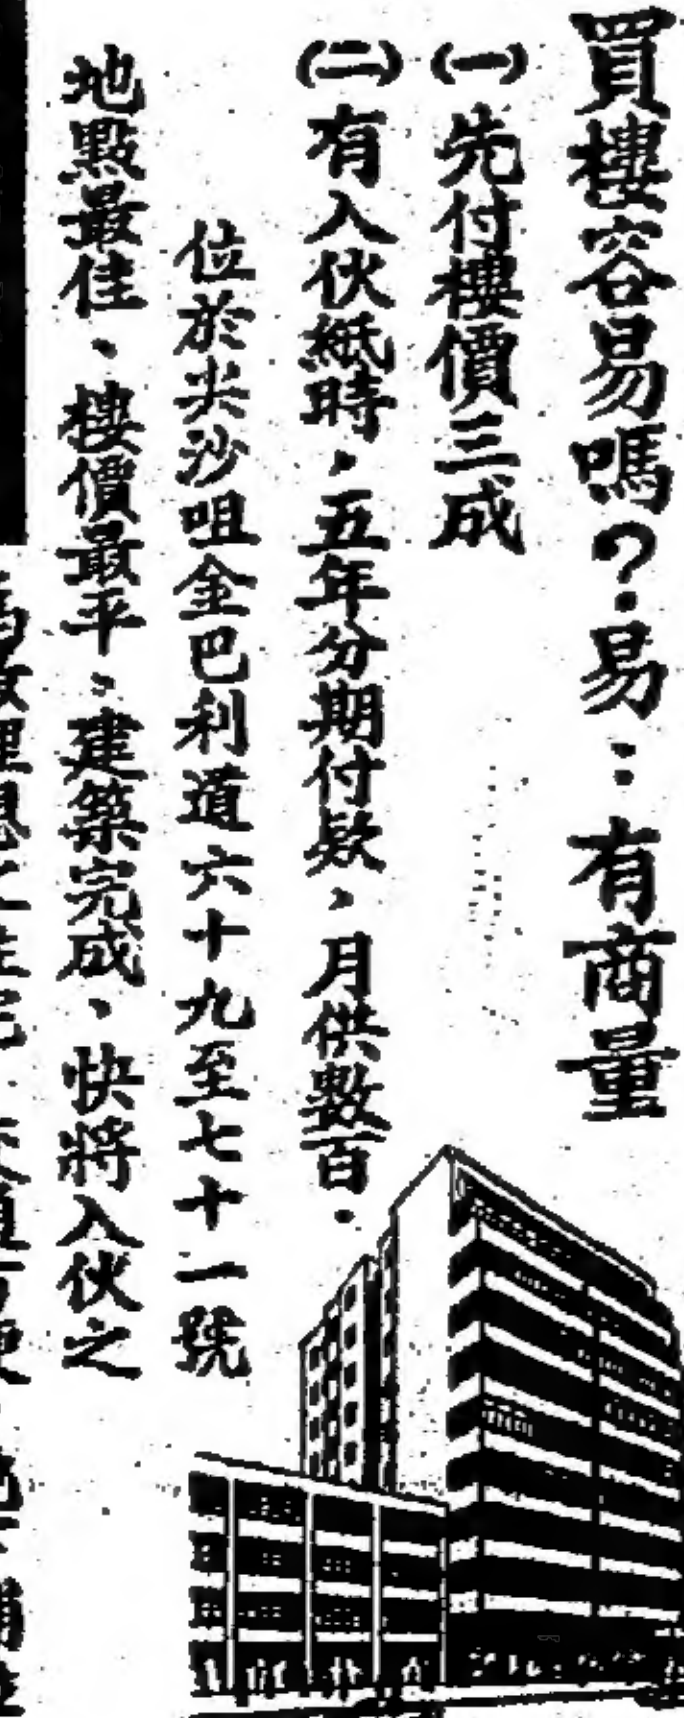 買樓容易嗎？易：有商量
(一)先付樓價三成
(二)有入伙紙時，五年分期付欵，月供數百．
位於尖沙咀金巴利道六十九至七十一號
地點最佳、樓價最平，建築完成、快將入伙之